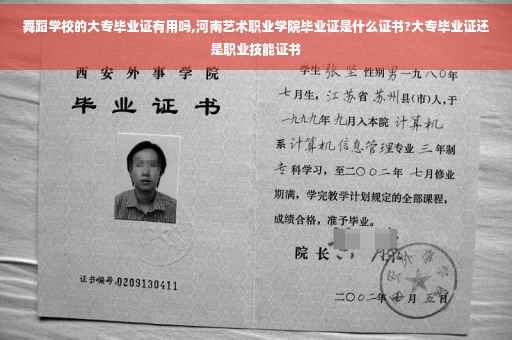 舞蹈学校的大专毕业证有用吗,河南艺术职业学院毕业证是什么证书?大专毕业证还
是职业技能证书
西安外事学院
毕业证书
证书编号:0209130411
学生 张坚 性别 男 一九八〇年
七月生，江苏省 苏州县(市)人,于
一九九九年 九月入本院 计算机
系 计算机信息管理专业 三年制
专科学习，至二〇〇二年 七月修业
期满，学完教学计划规定的全部课程，
成绩合格，准予毕业。
院长
二〇〇二年 月五日